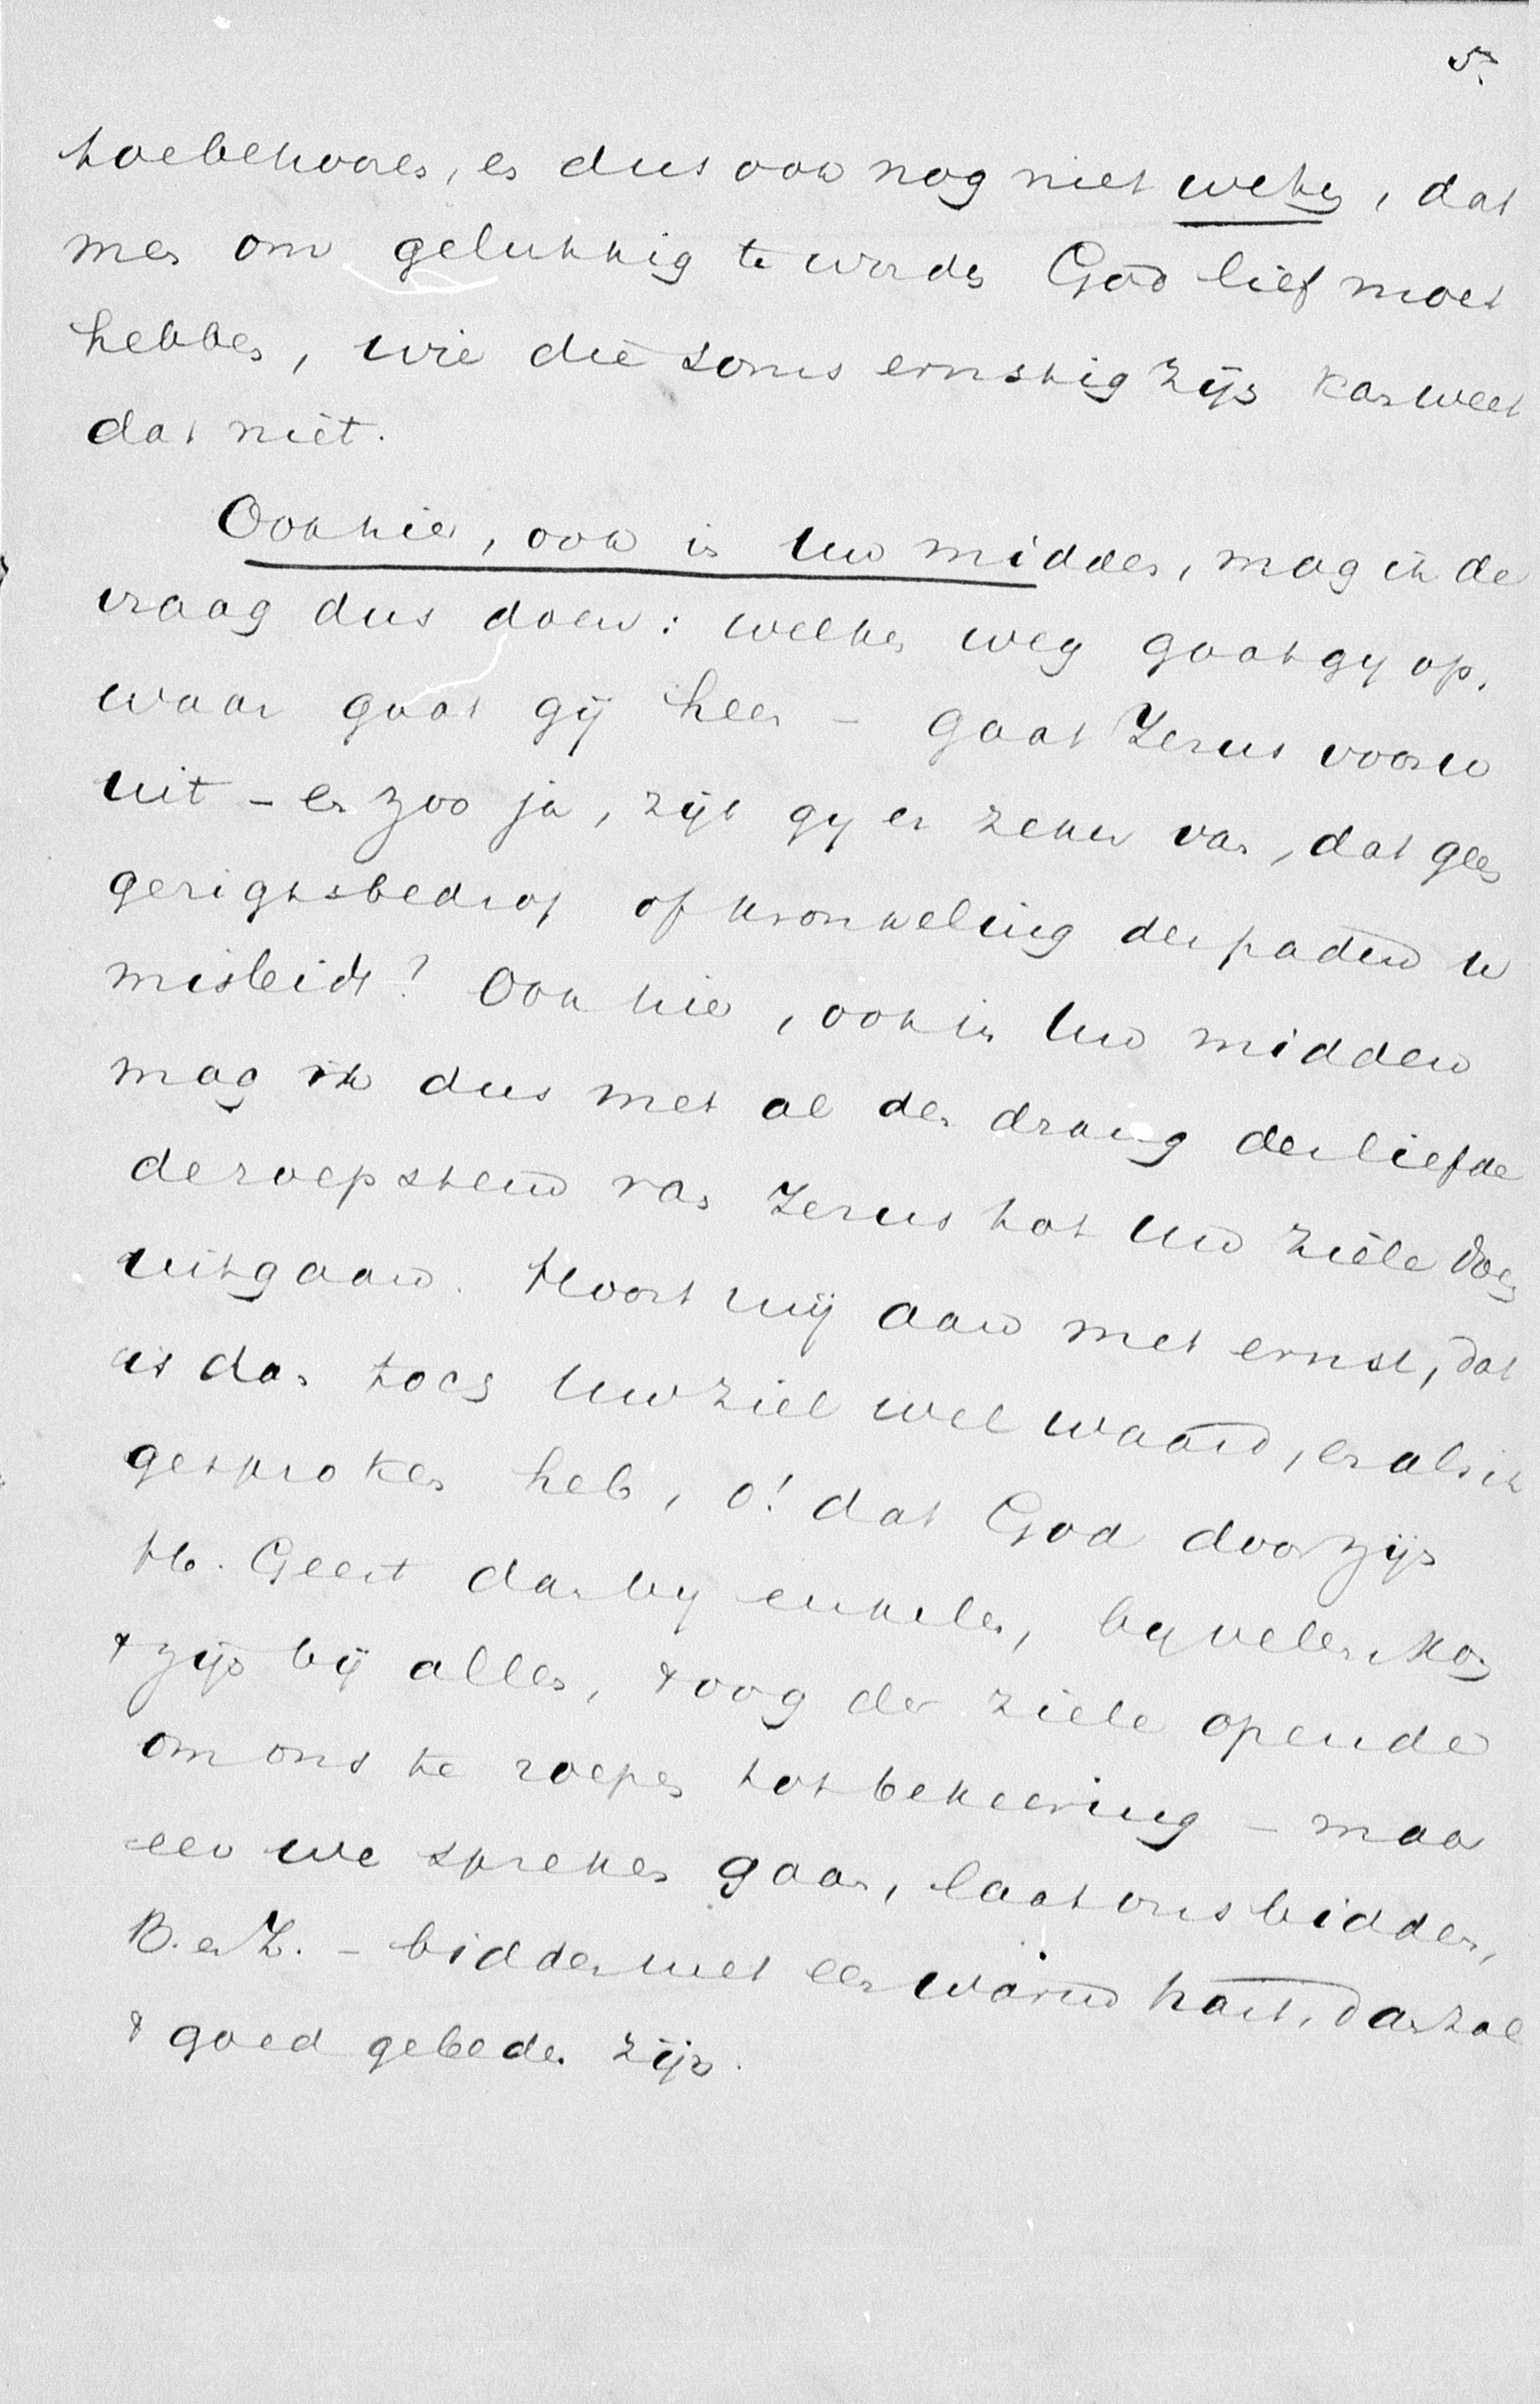 5.
toebehooren, en dus ook nog niet weten, dat
men om gelukkig te worden God lief moet
hebben, wie die soms ernstig zijn kan weet
dat niet.
Ook hier, ook in Uw midden, mag ik de
vraag dus doen: welken weg gaat gij op,
waar gaat gij heen - gaat Jezus voor u
uit - en zoo ja, zijt gij er zeker van, dat geen
gezigtsbedrog of kronkeling der paden u
misleidt? Ook hier, ook in Uw midden
mag ik dus met al den drang der liefde
de roepstem van Jezus tot Uw ziele doen
uitgaan. Hoort mij aan met ernst, dat
is dan toch Uw ziel wel waard, en als ik
gesproken heb, o! dat God door zijn
H. Geest dan bij enkelen, bij velen kan
't zijn bij allen, 't oog der ziele opende
om ons te roepen tot bekeering - maar
eer we spreken gaan, laat ons bidden,
B. en Z. - bidden met een warm hart, dan zal
't goed gebeden zijn.